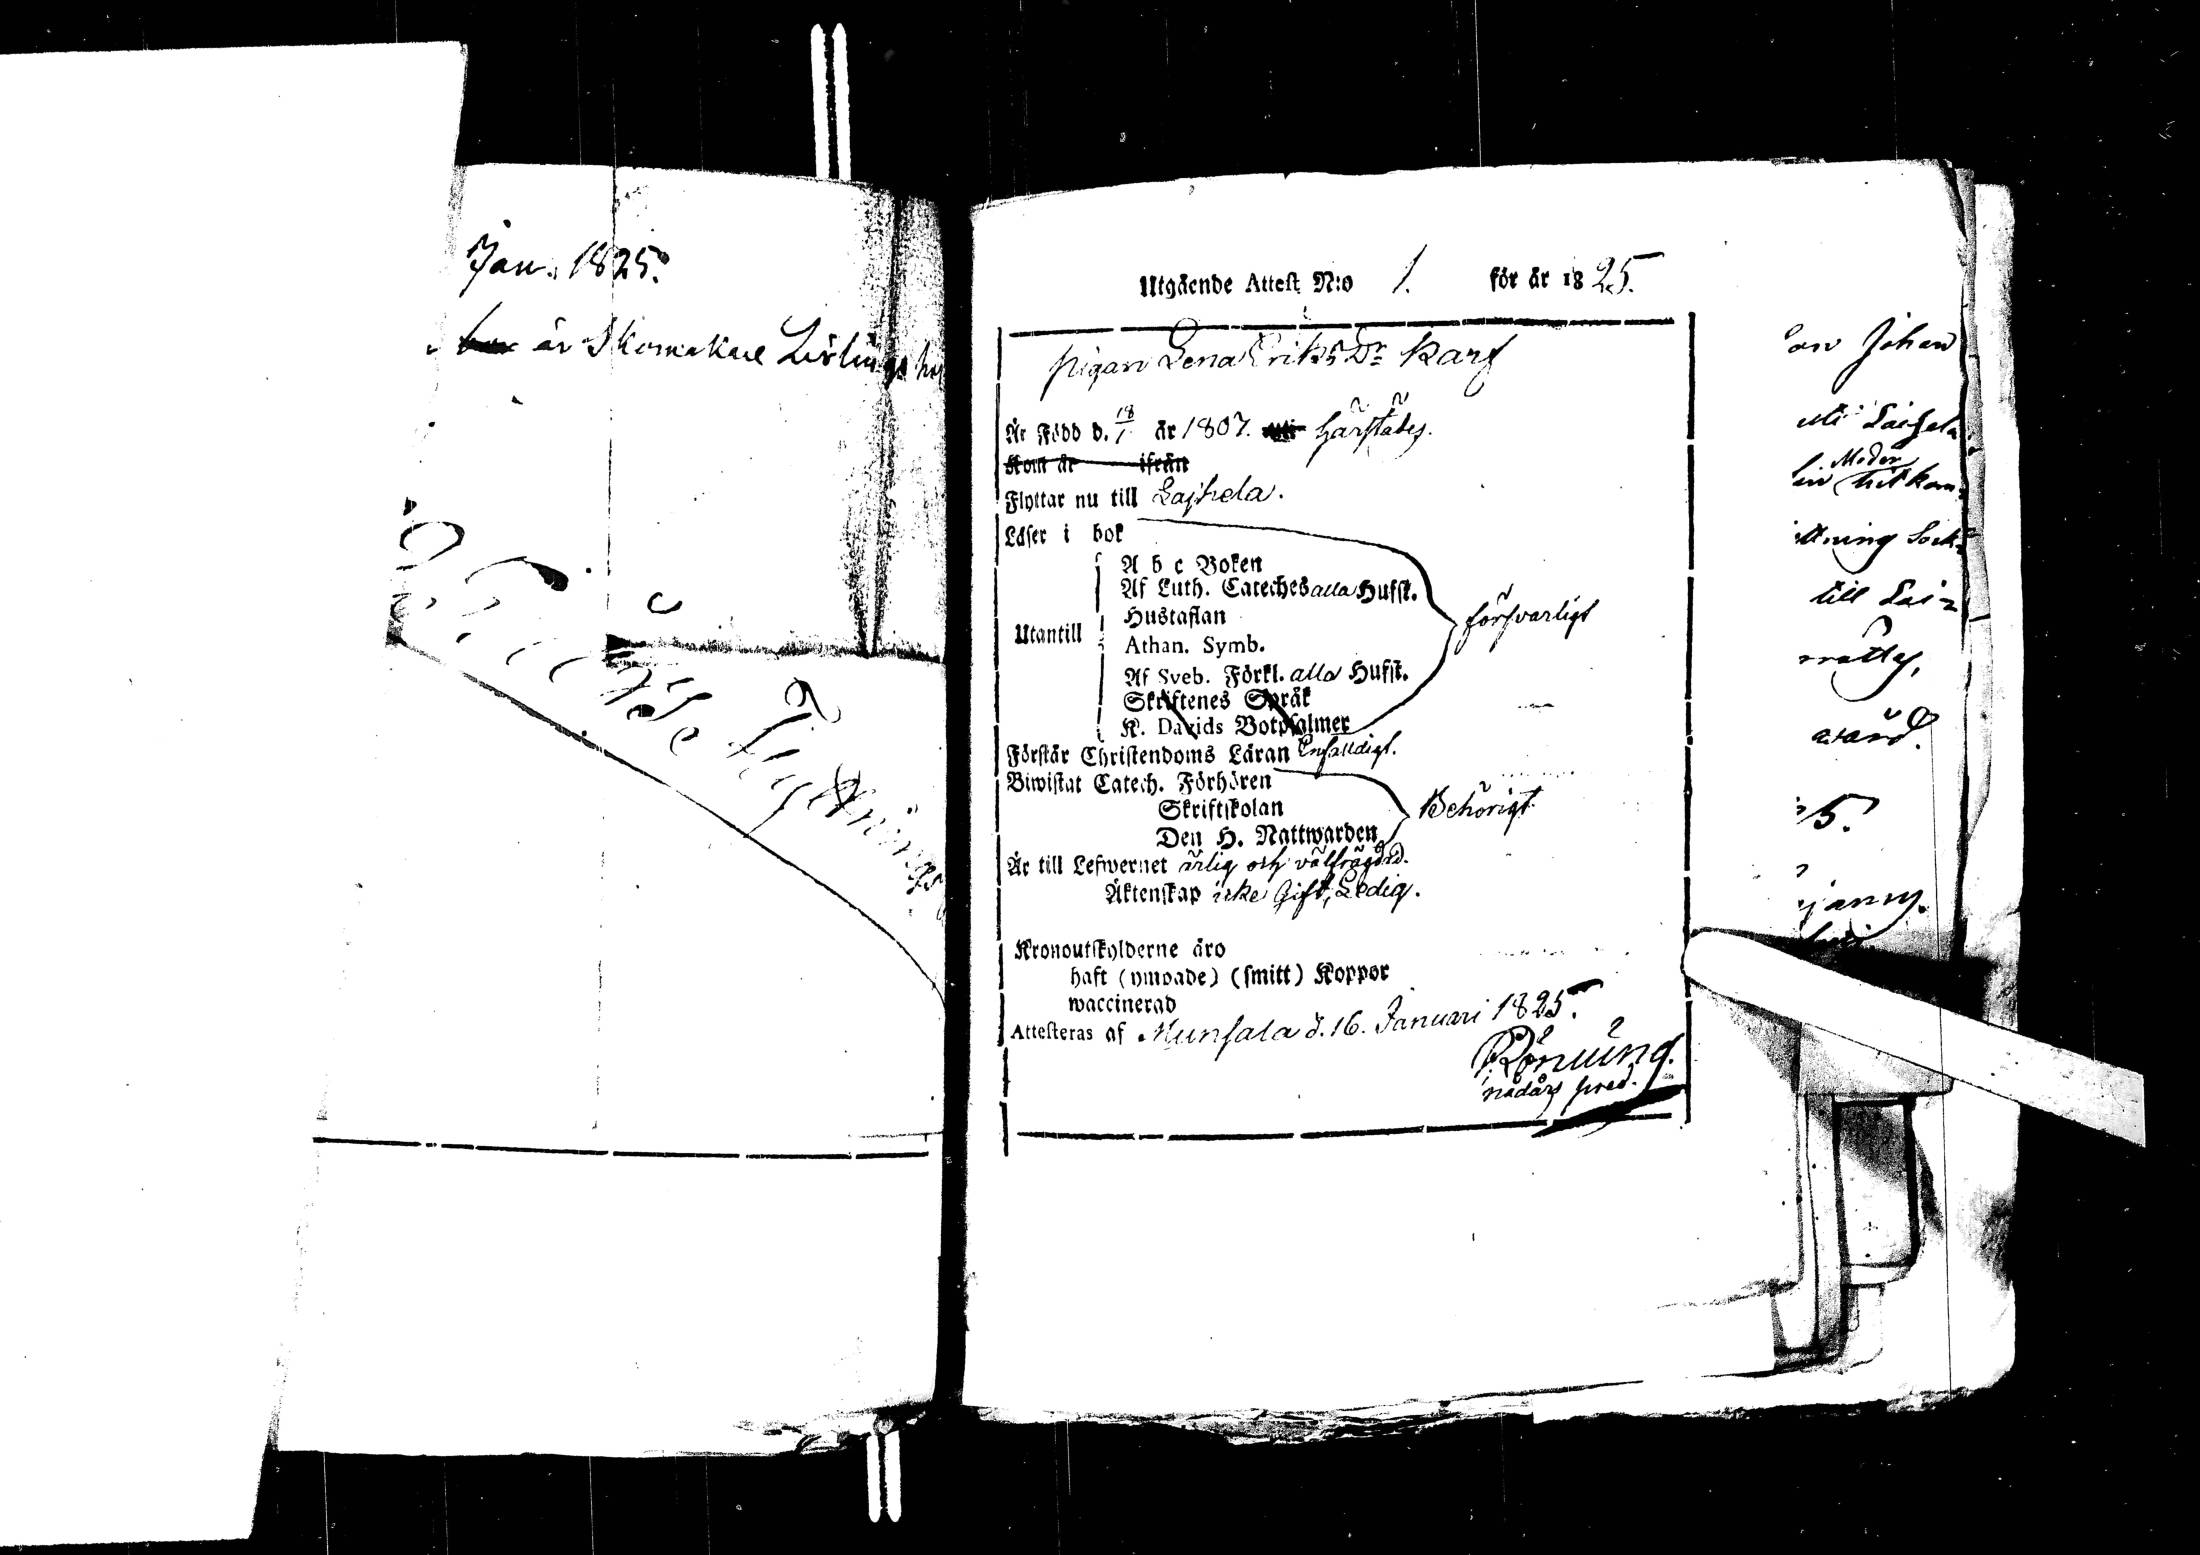 Jan. 1825.
är Skomakare
Utgående Attest N:o 1. för år 1825.
pigan Lena Eriks Dr Karf
Är Född d. 18/1 år 1807. härstädes.
Kom år ifrån
Flyttar nu till Laihela.
Läser i bok
A b c Boken
Af Luth. Cateches alla Hufst.
Hustaflan
Utantill
Athan. Symb.
försvarligt
Af Sveb. Förkl. alla Hufst.
Skriftenes Språk
K. Davids Botpsalmer
Förstår Christendoms Läran Enfalldigt.
Biwistat Catech. Förhören
Skriftskolan
Behörigt
Den H. Nattwarden
Är till Lefwernet ärlig och välfrägdad.
Äktenskap icke Gift, Ledig.
Kronoutskylderne äro
haft (ympade) (smitt) Koppor
waccinerad
Attesteras af Munsala d. 16. Januari 1825.
nådårs pred.
on Johan
Laihela
Moder
hit kom
ttning Sock
till Lai
5.